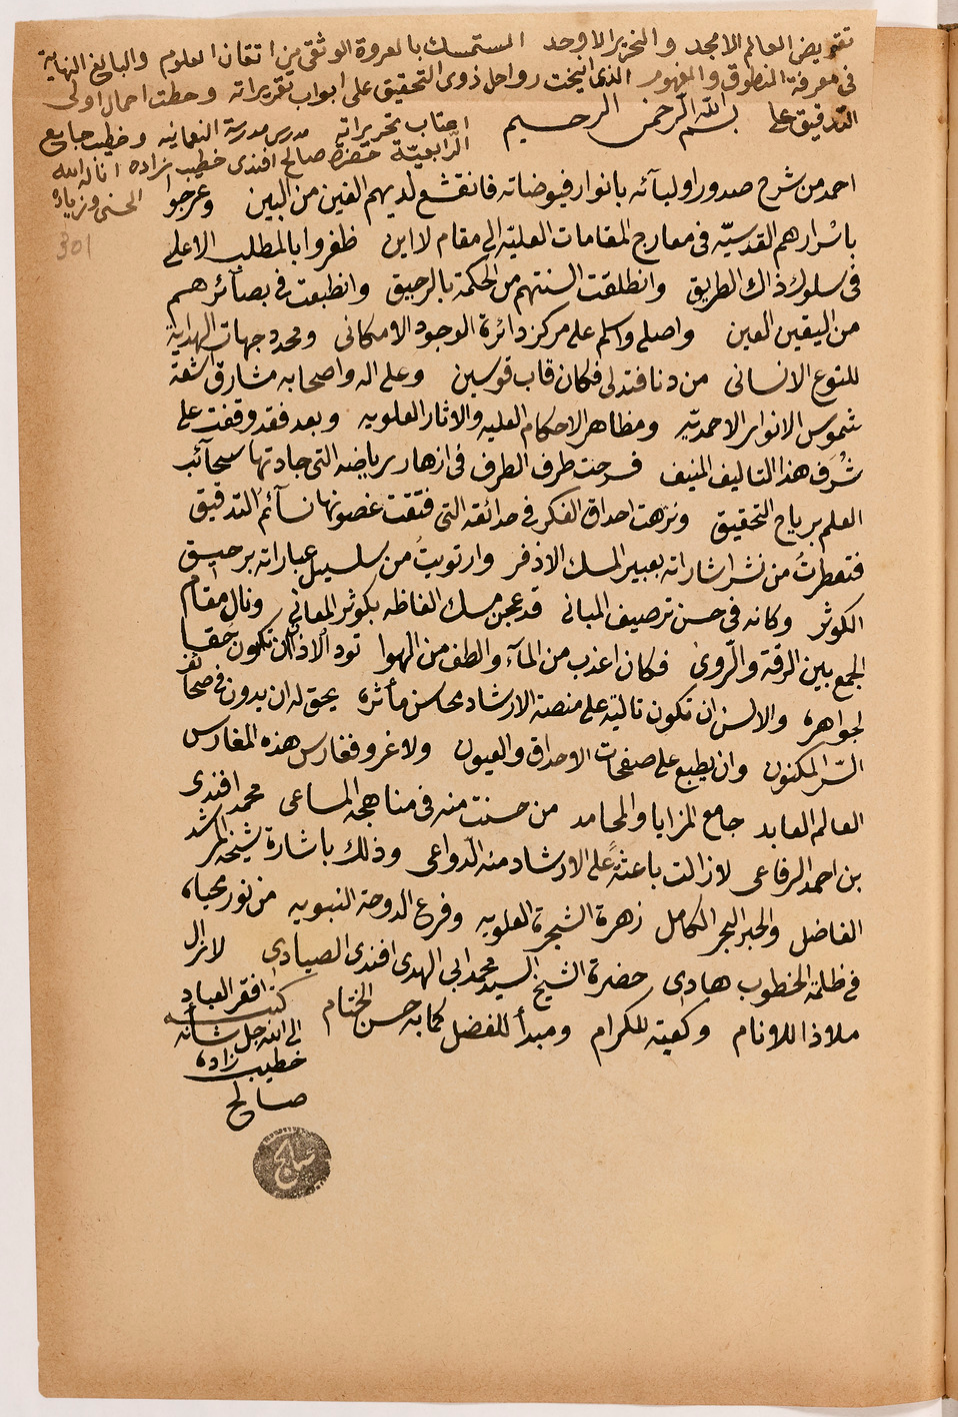 تقريض العالم الامجد والنحرير الاوحد المستمسك بالعروة الوثقى من اتقان العلوم والبالغ النهاية
فى معرفة المنطوق والمفهوم الذى انيخت رواحل ذوى التحقيق على ابواب تقريراته وحطت احمال اولى
التدقيق على اعتاب تحريراته مدرس مدرسة النعمانيه وخطيب جامع
الرابعيّة حضرة صالح افندى خطيب زاده اناله الله
الحسنى وزياده
301
بسم الله الرّحمن الرحيم
احمد من شرح صدور اوليآئه بانوار فيوضاته فانقشع لديهم الغين من البين وعرجوا
باسْرارهم القدسيّه فى معارج المقامات العليّه الى مقام لا اين ظفروا بالمطلب الاعلى
فى سلوك ذاك الطريق وانطلقت السنتهم من الحكمة بالرحيق وانطبعت فى بصآئرهم
من اليقين العين واصلى واسلم على مركز دائرة الوجود الامكانى ومحدد جهات الهداية
للنوع الانسانى من دنا فتدلى فكان قاب قوسين وعلى اله واصحابه مشارق اشعّة
شموس الانوار الاحمديّه ومظاهر الاحكام العليه والاثار العلويه وبعد فقد وقفت على
شرف هذا التاليف المنيف فسرحت طرف الطرف فى ازهار رياضه التى جادتها سحآئب
العلم برياح التحقيق ونزهت احداق الفكر فى حدائقه التى فتقت غصونها نسآئم التدقيق
فتعطرتُ من نشر اشاراته بعبير المسك الاذفر وارتويتُ من سلسبيل عباراته برحيق
الكوثر وكانه فى حسن ترصيف المبانى قد عجن مسك الفاظه بكوثر المعانى ونال مقام
الجمع بين الرقة والرّوى فكان اعذب من المآء والطف من الهوا تود الاذان ان تكون حقبا
لجواهره والالسن ان تكون تالية على منصة الارشاد محاسن مأثره يحق له ان يدون فى صحائف
السّر المكنون وان يطبع على صفحات الاحداق والعيون ولا غرو فغارس هذه المغارس
العالم العابد جامع المزايا والمحامد من حسنت منه فى مناهجه المساعى محمد افندى
بن احمد الرفاعى لازالت باعثةً على الارشاد منه الدّواعى وذلك باشارة شيخه المرشد
الفاضل والحبر البحر الكامل زهرة الشجرة العلويه وفرع الدوحة النبويه من نور محياه
فى ظلمة الخطوب هادى حضرة الشيخ السيد محمد ابى الهدى افندى الصيادى لازال
ملاذا للانام وكعبة للكرام ومبدأ للفضل كما به حسن الختام
كتبه افقر العباد
الى الله جل شأنه
خطيب زاده
صالح
صالح